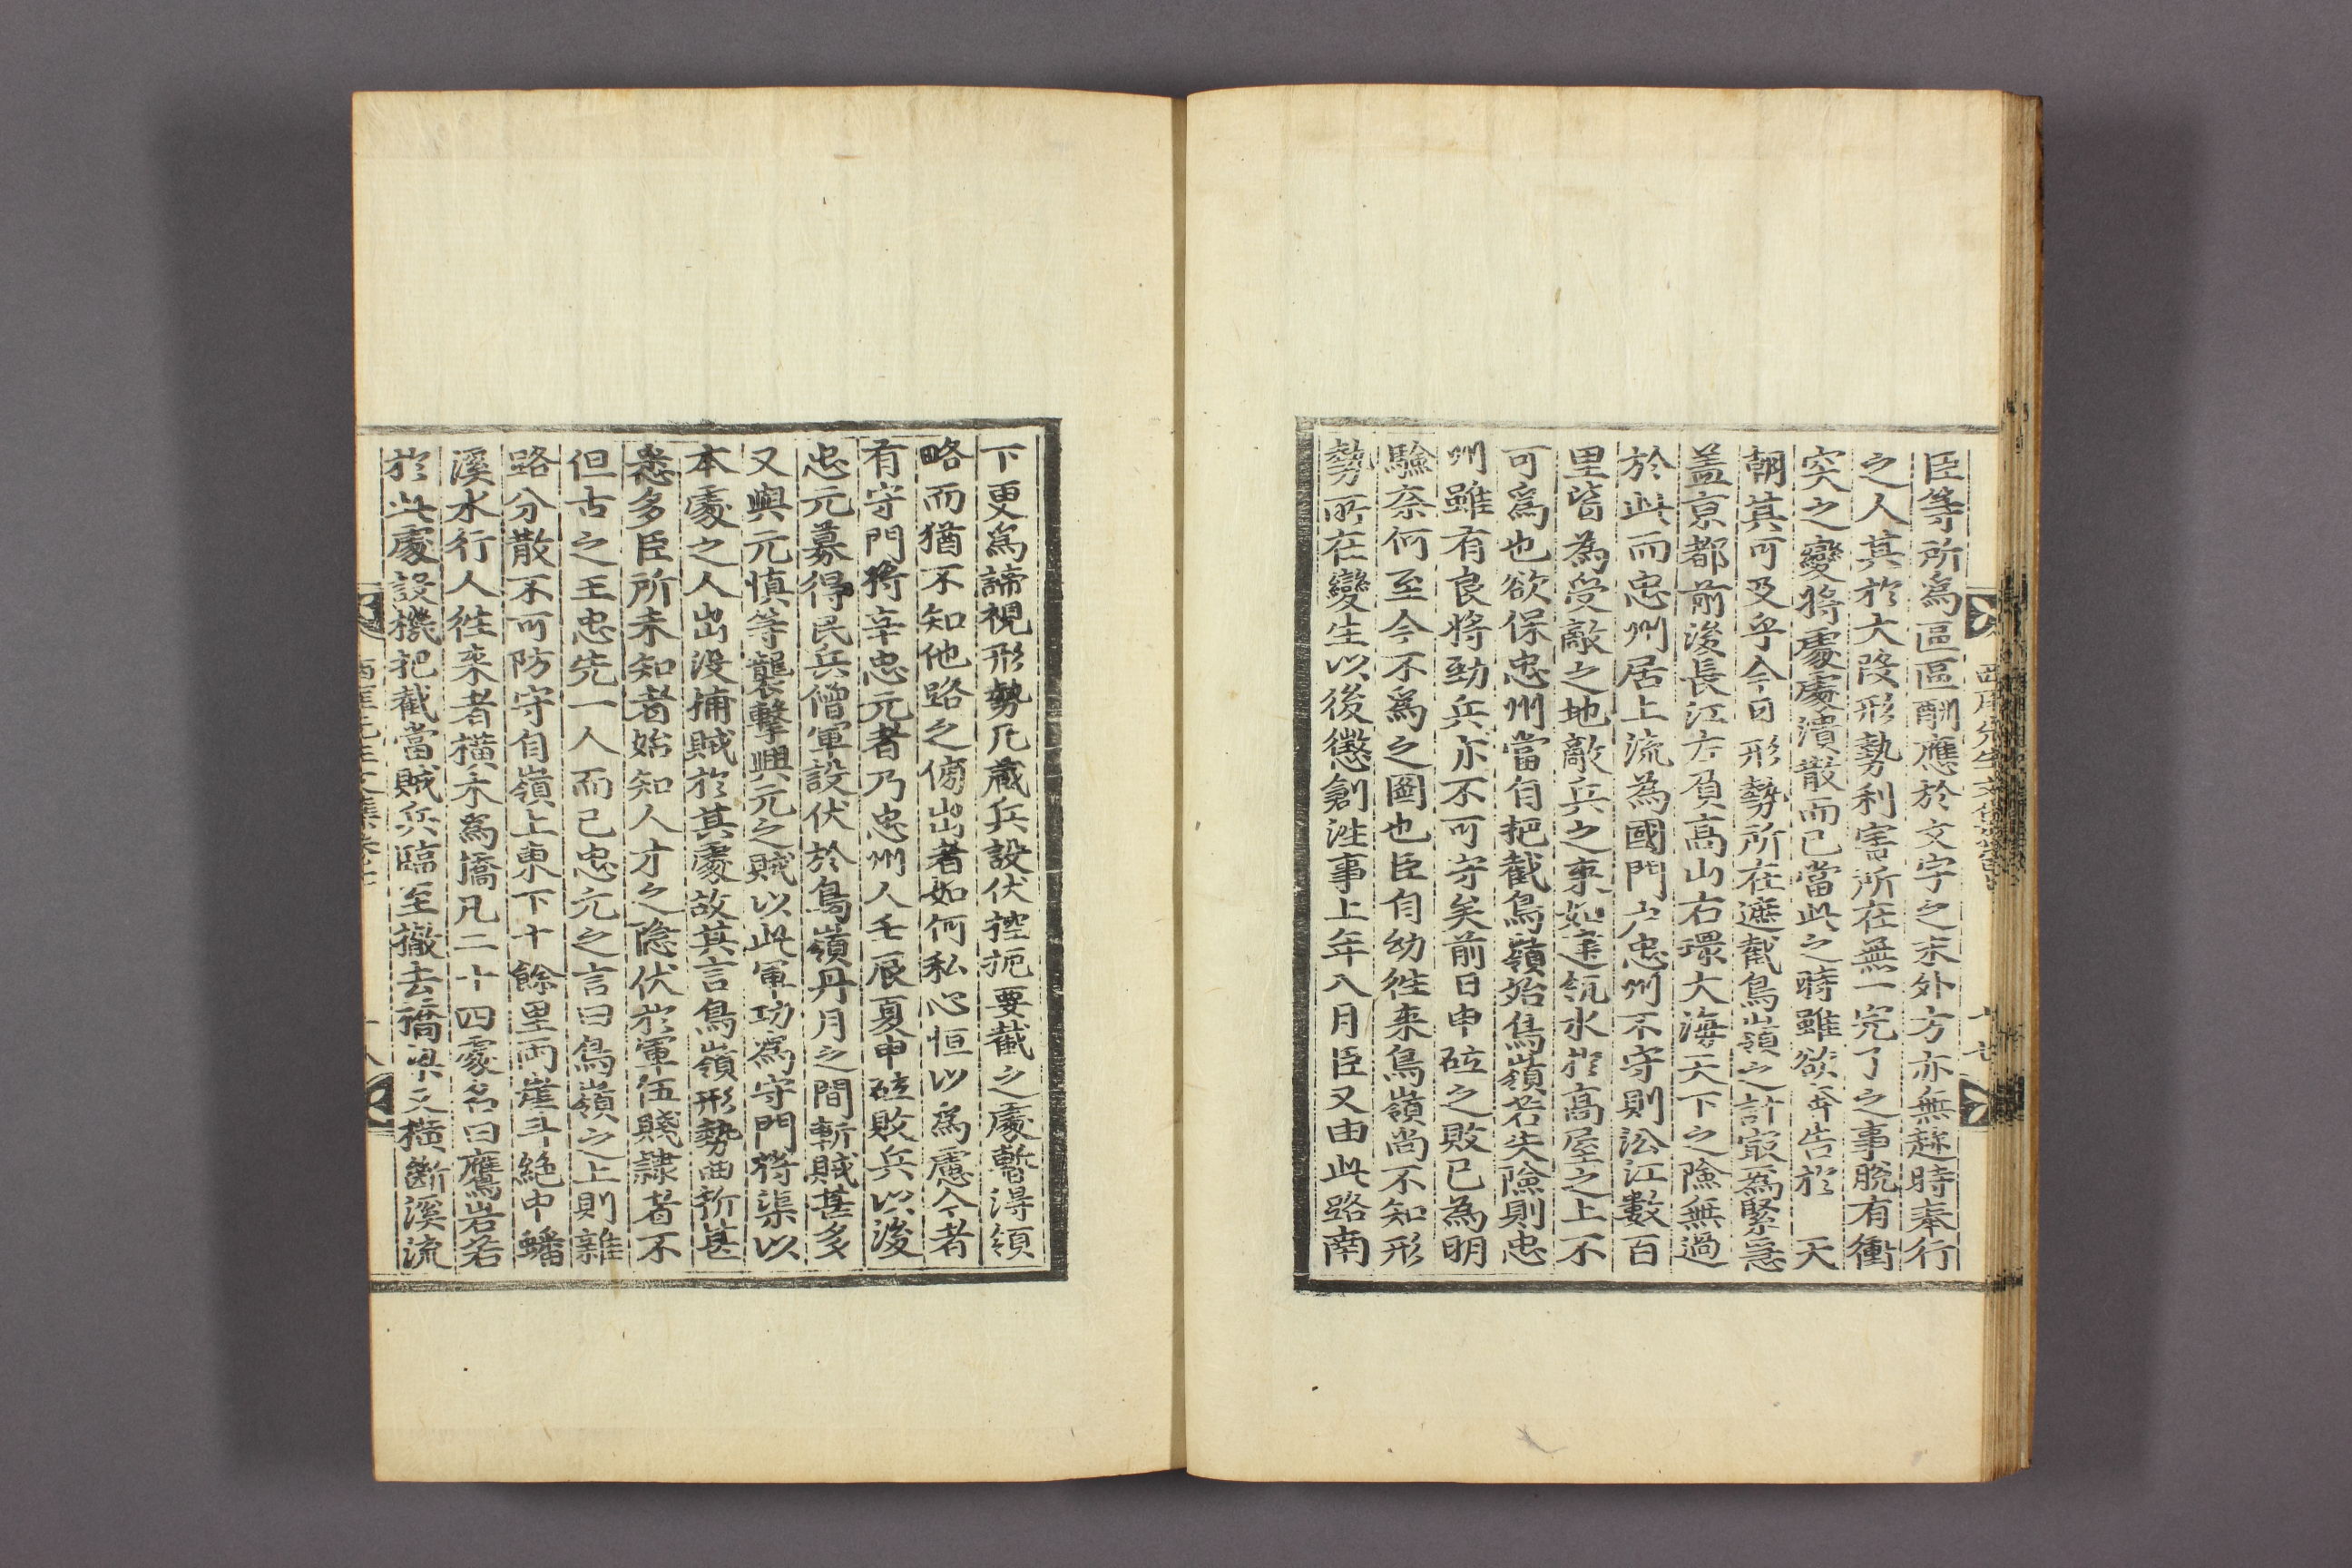 臣等所爲區區酬應於文字之末外方亦無趂時奉行
之人其於大段形勢利害所在無一完了之事脫有衝
突之變將處處潰散而已當此之時雖欲奔告於 天
朝其可及乎今日形勢所在遮截鳥嶺之計㝡爲緊急
盖京都前浚長江左負高山右環大海天下之險無過
於此而忠州居上流為國門户忠州不守則㳂江數百
里皆為受敵之地敵兵之来如建瓴水於高屋之上不
可爲也欲保忠州當自把截鳥嶺始鳥嶺若失險則忠
州雖有良將勁兵亦不可守矣前日申砬之敗已為明
驗奈何至今不爲之圖也臣自幼徃来鳥嶺尚不知形
勢所在變生以後懲創徃事上年八月臣又由此路南
下更爲諦視形勢凡藏兵設伏控扼要截之處暫得領
略而猶不知他路之傍出者如何私心恒以爲慮今者
有守門將辛忠元者乃忠州人壬辰夏申砬敗兵以後
忠元募得民兵僧軍設伏於鳥嶺丹月之間斬賊甚多
又與元愼等襲擊興元之賊以此軍功爲守門將渠以
本處之人出没捕賊於其處故其言鳥嶺形勢曲折甚
悉多臣所未知者始知人才之隐伏於軍伍賤隷者不
但古之王忠先一人而已忠元之言曰鳥嶺之上則雜
路分散不可防守自嶺上東下十餘里兩崖斗絶中蟠
溪水行人徃来者横木爲橋凡二十四處名曰鷹岩若
於此處設機把截當賊兵臨至撤去橋梁又横斷溪流